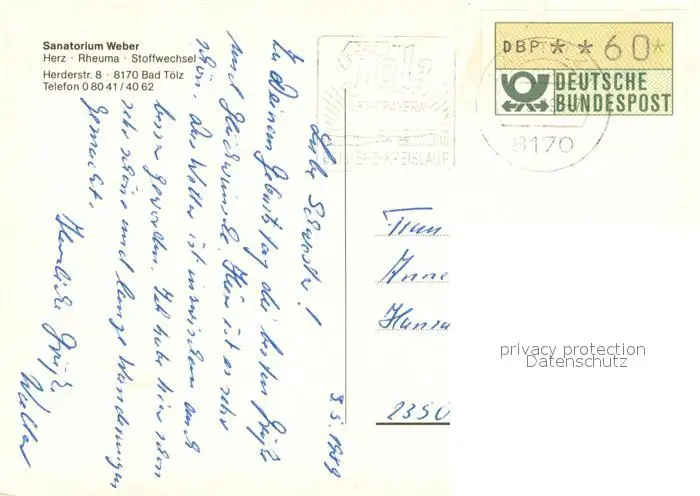 Sanatorium Weber
Herz · Rheuma · Stoffwechsel
Herderstr. 8 · 8170 Bad Tölz
Telefon 0 80 41 / 40 62
DBP * * 60 *
DEUTSCHE
BUNDESPOST
8170
HERZ-KREISLAUF
3.3.1989
Liebe Schwester!
Zu Deinem Geburtstag die besten Grüße
und Glückwünsche. Hier ist es sehr
schön. Das Wetter ist inzwischen auch
besser geworden. Ich habe hier schon
sehr schöne und lange Wanderungen
gemacht.
Herzliche Grüße
Walter
Frau
Anne
Hansa
2350
privacy protection
Datenschutz